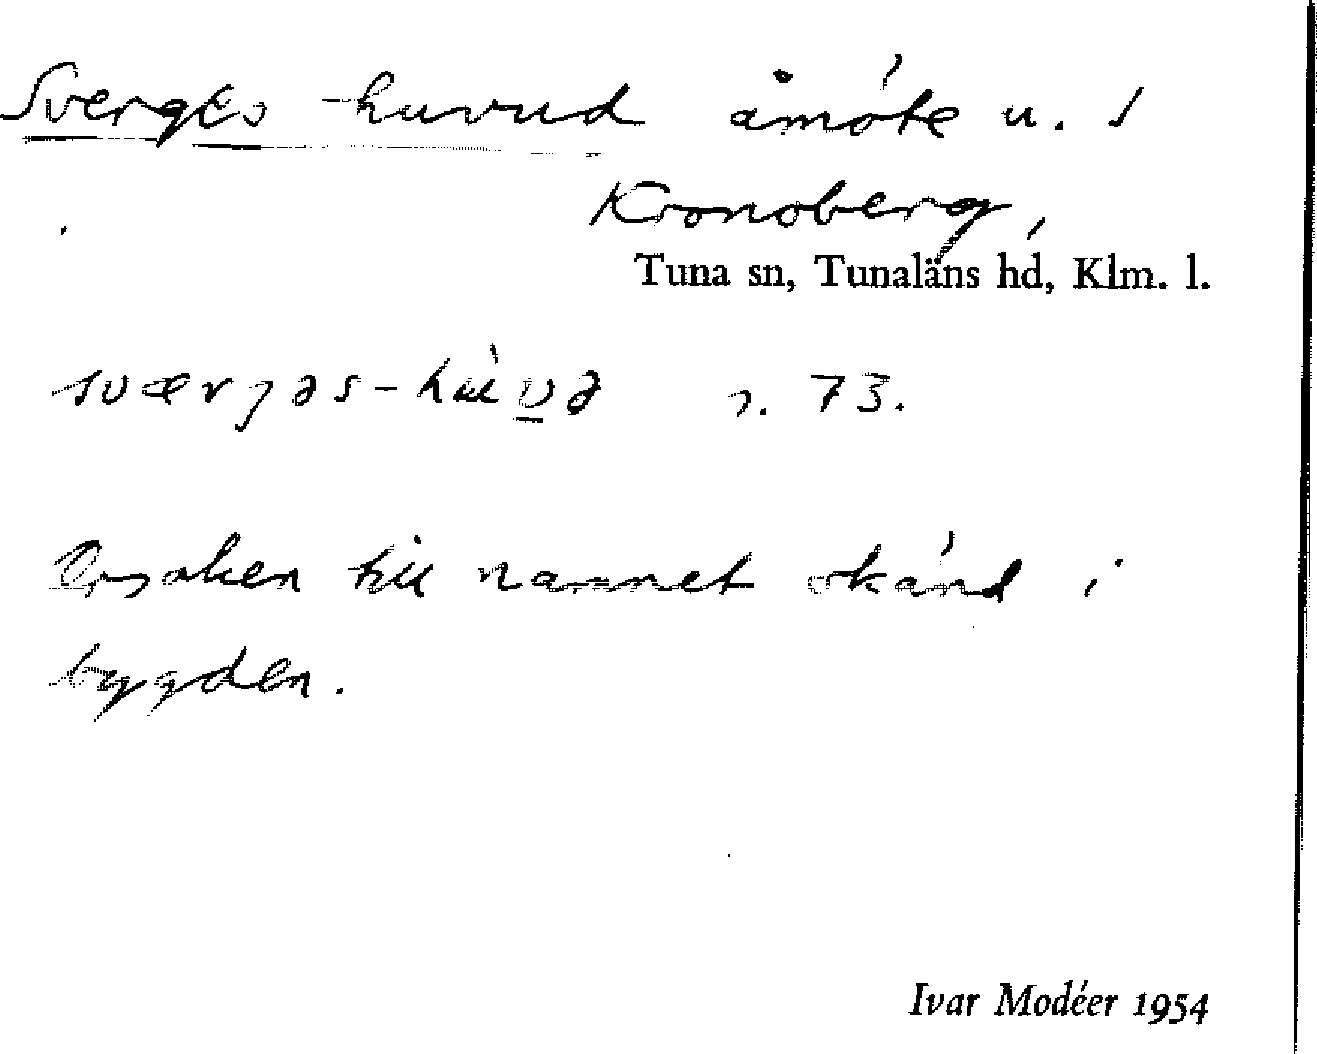 Sverges huvud åmöte u. 1
Kronoberg,
Tuna sn, Tunaläns hd, Klm. l.
73.
Orsaken till namnet okänd i
bygden.
Ivar Modéer 1954